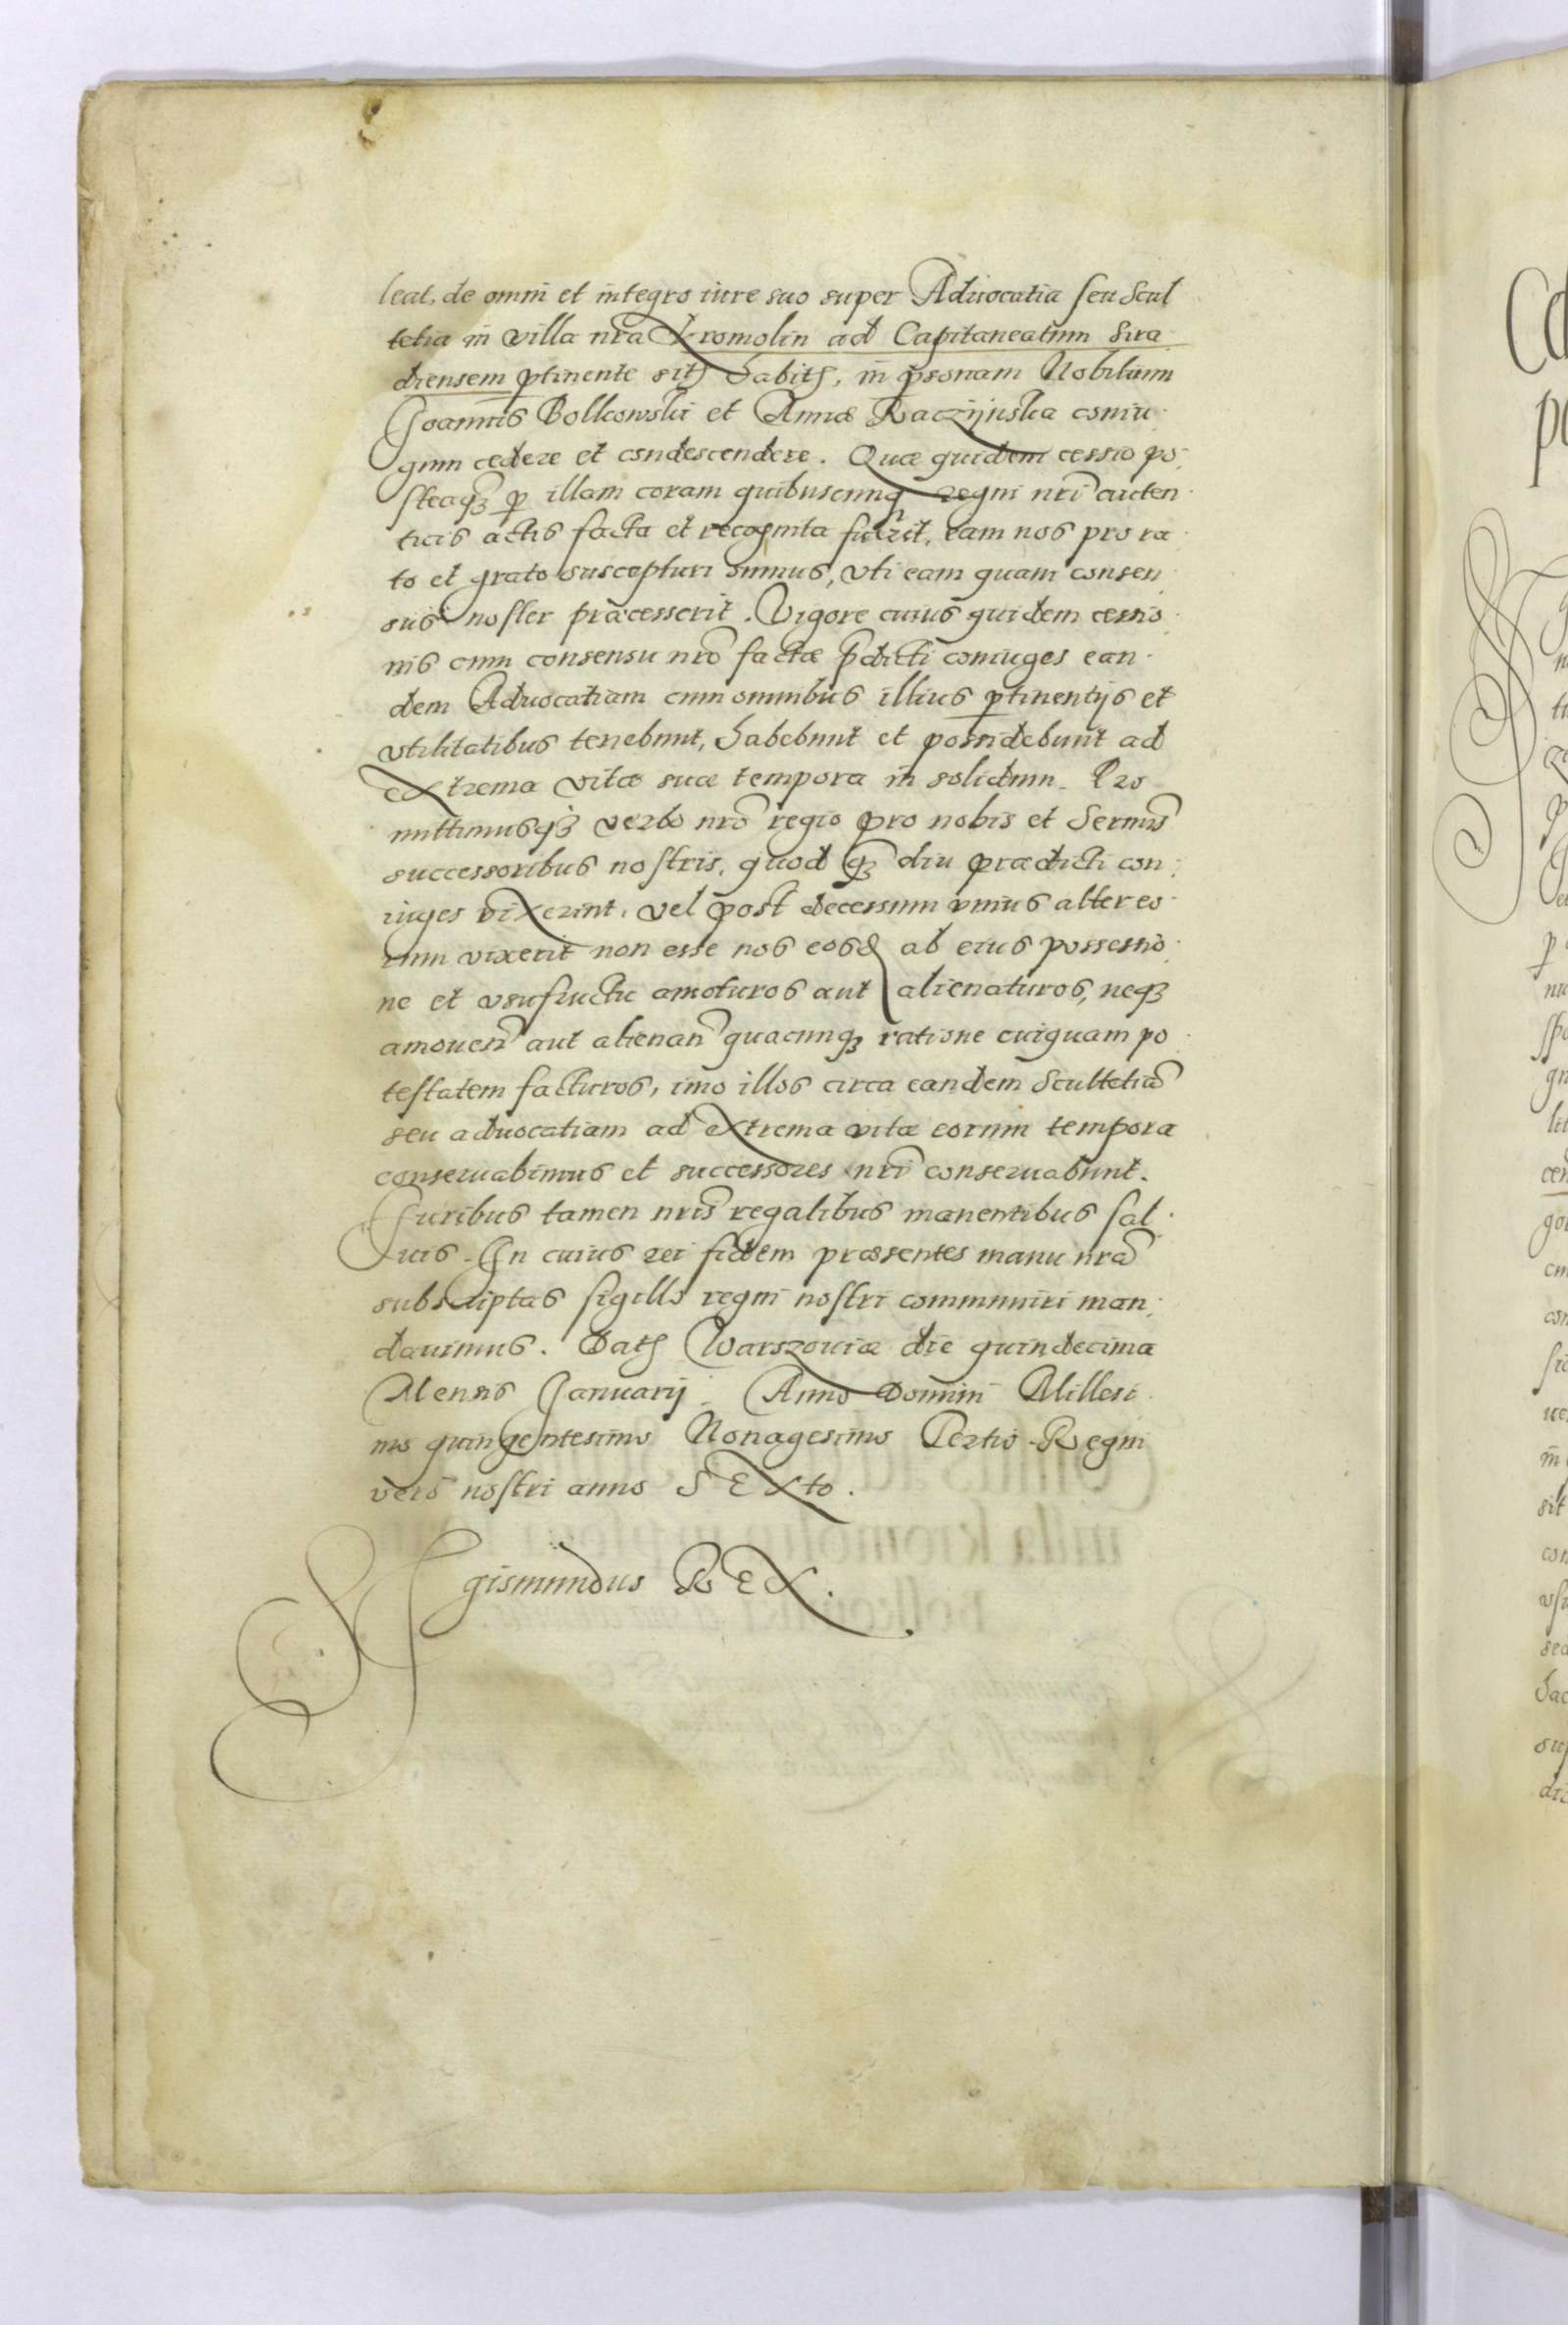 leat, de omni et integro iure suo super Aduocatia seu Scul
tetia in villa nra Kromolin ad Capitaneatum Sira
diensem ptinente sitq habitq, in psonam Nobilium
Joannis Bolkowski et Annæ Raczijnska coniu
gum cedere et condescendere. Quæ quidem cessio po
steaq3 p illam coram quibuscunq regni nri auten
ticis actis facta et recognita fuerit, eam nos pro ra
to et grato suscepturi sumus, vti eam quam consen
sus noster præcesserit. Vigore cuius quidem cessio
nis cum consensu nro factæ pdicti coniuges ean
dem Aduocatiam cum omnibus illius ptinentijs et
vtilitatibus tenebunt, habebunt et possidebunt ad
extrema vitæ suæ tempora in solidum. Pro
mittimusq3 verbo nro regio pro nobis et Sermis
successoribus nostris, quod q3 diu prædicti con
iuges vixerint, vel post decessum vnius alter eo
rum vixerit non esse nos eosd ab eius possessio
ne et vsufructu amoturos aut alienaturos, neq3
amouen aut alienan quacunq3 ratione cuiquam po
testatem facturos, imo illos circa eandem Scultetia
seu aduocatiam ad extrema vitæ eorum tempora
conseruabimus et successores nri conseruabunt.
Juribus tamen nris regalibus manentibus sal
uis. In cuius rei fidem præsentes manu nra
subscriptas sigillo regni nostri communiri man
dauimus. Datq Warszouiæ die quindecima
Mensis Januarij. Anno Domini Millesi
mo quingentesimo Nonagesimo Tertio Regni
vero nostri anno SEXto.
Sigismundus REX.